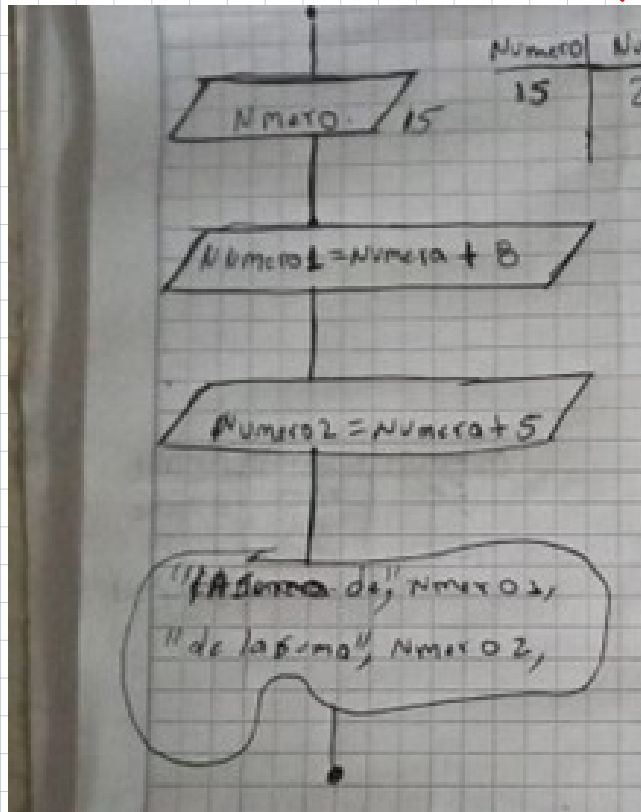 Numero Nu
15 2
Nmero. 15
Numero1 = Numero + 8
Numero2 = Numero + 5
"LA suma de," Nmero 1,
"de la suma", Nmero 2,